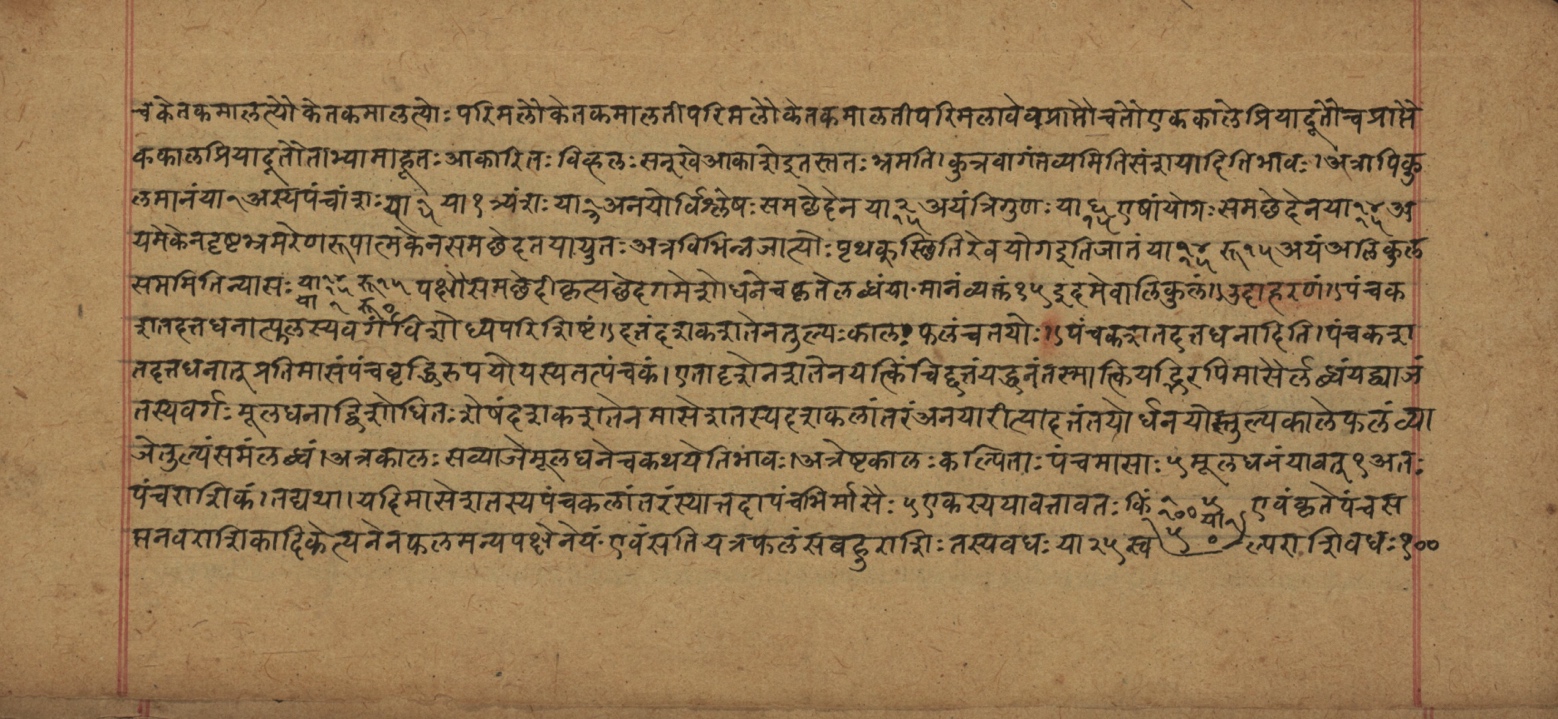 च केतकमालत्यौ केतकमालत्योः परिमलौ केतकमालतीपरिमलौ केतकमालतीपरिमलावेव प्राप्तौ चतौ एककाले प्रियादूतौ च प्राप्तै
ककालप्रियादूतौ ताभ्यामाहूतः आकारितः विह्वलः सन् खे आकाशे इतस्ततः भ्रमति। कुत्र वा गंतव्यमिति संशयादिति भावः। अत्रापि कु
लमानं या १ अस्य पंचांशः या १/५ या १ त्र्यंशः या १/३ अनयोर्विश्लेषः समच्छेदेन या २/१५ अयं त्रिगुणः या ६/१५ एषां योगः समछेदेन या १४/१५ अ
यमेकेन दृष्टभ्रमरेण रूपात्मकेन समछेदतया युतः अत्र विभिन्नजात्योः पृथक् स्थितिरेव योग इति जातं या १४/१५ रू १५ अयं अलिकुल
सममिति न्यासः या १४ रू १५ या १ रू ० पक्षौ समछेदीकृत्य छेदगमे शोधने च कृते लब्धं या· मानं व्यक्तं १५ इदमेवालिकुलं॥ उदाहरणं॥ पंचक
शतदत्तधनात्फलस्य वर्गं विशोध्य परिशिष्टं॥ दत्तं दशकशतेन तुल्यः कालः फलं च तयोः॥ पंचकशतदत्तधनादिति। पंचकश
तदत्तधनात् प्रतिमासं पंचवृद्धिरुपयो यस्य तत्पंचकं। एतादृशेन शतेन यत्किंचिद्दत्तं यद्धनं तस्मात्कियद्भिरपि मासैर्लब्धं यद्व्याजं
तस्य वर्गः मूलधनाद्विशोधितः शेषं दशकशतेन मासे शतस्य दशकलांतरं अनया रीत्या दत्तं तयोर्धनयोस्तुल्यकाले फलं व्या
जे तुल्यं समं लब्धं। अत्र कालः सव्याजे मूलधने च कथयेति भावः। अत्रेष्टकालः कल्पिताः पंचमासाः ५ मूलधनं यावत् १ अतः
पंचराशिकं। तद्यथा। यदि मासे शतस्य पंचकलांतरं स्यात्तदा पंचभिर्मासैः ५ एकस्य यावत्तावतः किं १ ५ १०० या १ ५ ० एवं कृते पंचस
प्तनवराशिकादिकेत्यनेन फलमन्यपक्षे नेयं· एवं सति यत्र फलं स बहुराशिः तस्य वधः या २५ स्व ल्पराशिवधः १००